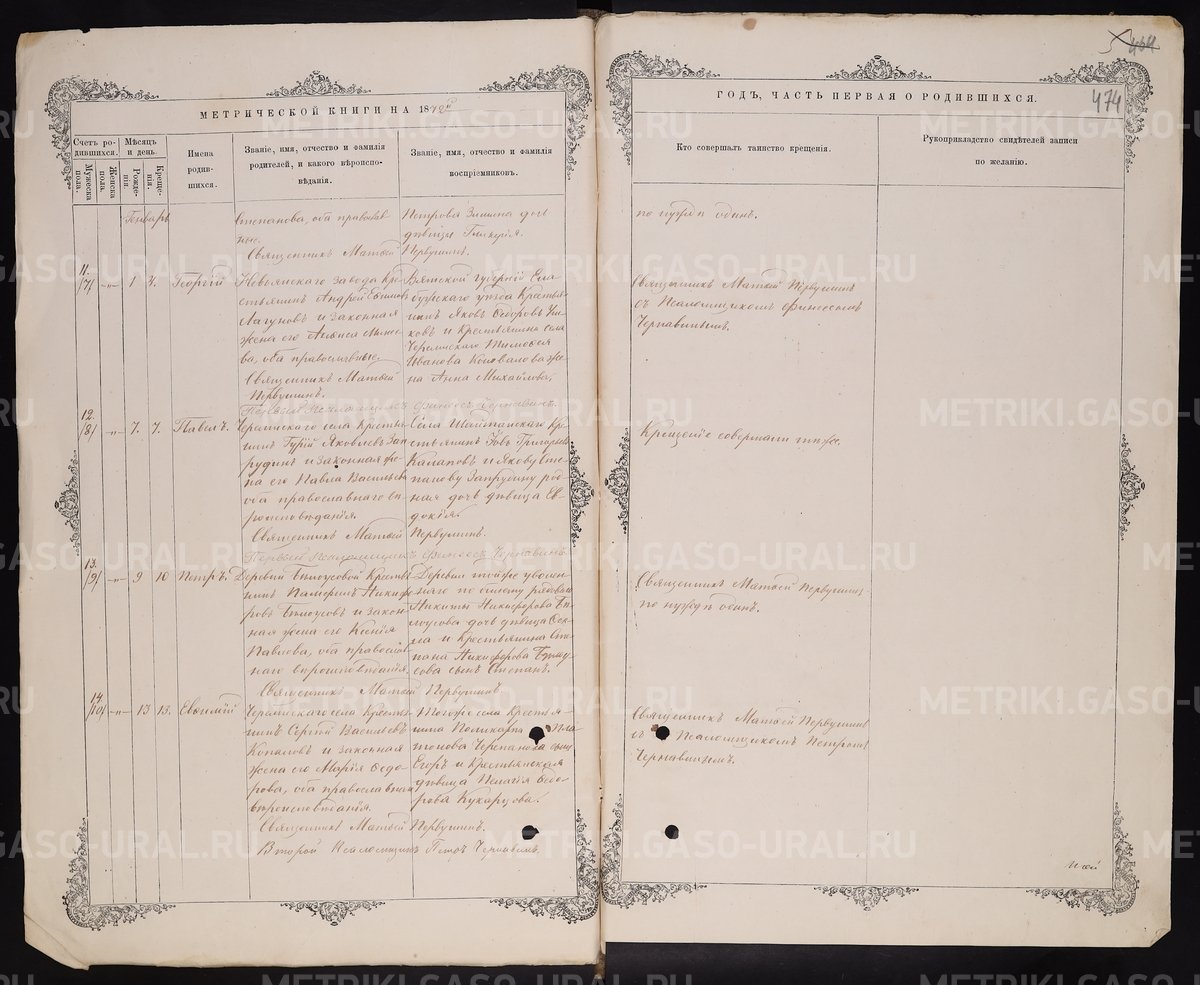 474
МЕТРИЧЕСКОЙ КНИГИ НА 1872й
ГОДЪ, ЧАСТЬ ПЕРВАЯ О РОДИВШИХСЯ.
Счетъ родившихся.
Мужеска пола.
Женска пола.
Мѣсяцъ и день.
Рожденія.
Крещенія.
Имена
родив-
шихся.
Званіе, имя, отчество и фамилія
родителей, и какого вѣроиспо-
вѣданія.
Званіе, имя, отчество и фамилія
воспріемниковъ.
Кто совершалъ таинство крещенія.
Рукоприкладство свидѣтелей записи
по желанію.
Генварь
Степанова, оба православ
ные.
Священникъ Матѳей Первушинъ.
Петрова Зимина дочь
дѣвица Гликерія.
по нуждѣ одинъ.
11.
/7/ -„- 1 4. Георгій
завода кре
стьянинъ Андрей
Лагуновъ и законная
жена его
ва, оба православные.
Священникъ Матѳей
Первушинъ.
Вятской губерніи Ела
бужскаго уѣзда Крестья
нинъ Яковъ Ѳедоровъ
ковъ и Крестьянина села
Тимоѳея
Иванова Коновалова же
на Анна Михайлова,
Священникъ Матѳей Первушинъ
съ Псаломщикомъ Финеесомъ
Чернавинымъ.
Первый Псаломщикъ Финеесъ Чернавинъ.
12.
/8/ -„- 7. 7. Павелъ.
села Крестья
нинъ Гурій Яковлевъ Зап
рудинъ и законная же
на его Павла Васильева
оба православнаго вѣ
роисповѣданія.
Священникъ Матѳей Первушинъ.
Села Шайтанскаго Кре
стьянинъ Іовъ Григорьевъ
и Якову Сте
панову Запрудину род
ная дочь дѣвица Ев
докія.
Крещеніе совершали тѣже.
Первый Псаломщикъ Финеесъ Чернавинъ.
13.
/9/ -„- 9 10 Петръ.
Деревни Бѣлоусовой Крестья
нинъ Памфилъ Никифо
ровъ Бѣлоусовъ и закон
ная жена его Ксенія
Павлова, оба православ
наго вѣроисповѣданія.
Священникъ Матѳей Первушинъ.
Деревни тойже уволен
наго по билету рядоваго
Никиты Никифорова Бѣ
лоусова дочь дѣвица Ѳек
ла и крестьянина Сте
пана Никифорова Бѣло
усова сынъ Степанъ.
Священникъ Матѳей Первушинъ
по нуждѣ одинъ.
14.
/10/ -„- 13 13. Евѳимій
села Крестья
нинъ Сергій Васильевъ
Копаловъ и законная
жена его Марія Ѳедо
рова, оба православнаго
вѣроисповѣданія.
Священникъ Матѳей Первушинъ.
Второй Псаломщикъ Петръ Чернавинъ.
Тогоже села крестья-
нина Поликарпа Пла
тонова Черепанова сынъ
Егоръ и крестьянская
дѣвица Пелагія Ѳедо
рова Кухарцова.
Священникъ Матѳей Первушинъ
съ Псаломщикомъ Петромъ
Чернавинымъ.
METRIKI.GASO-URAL.RU